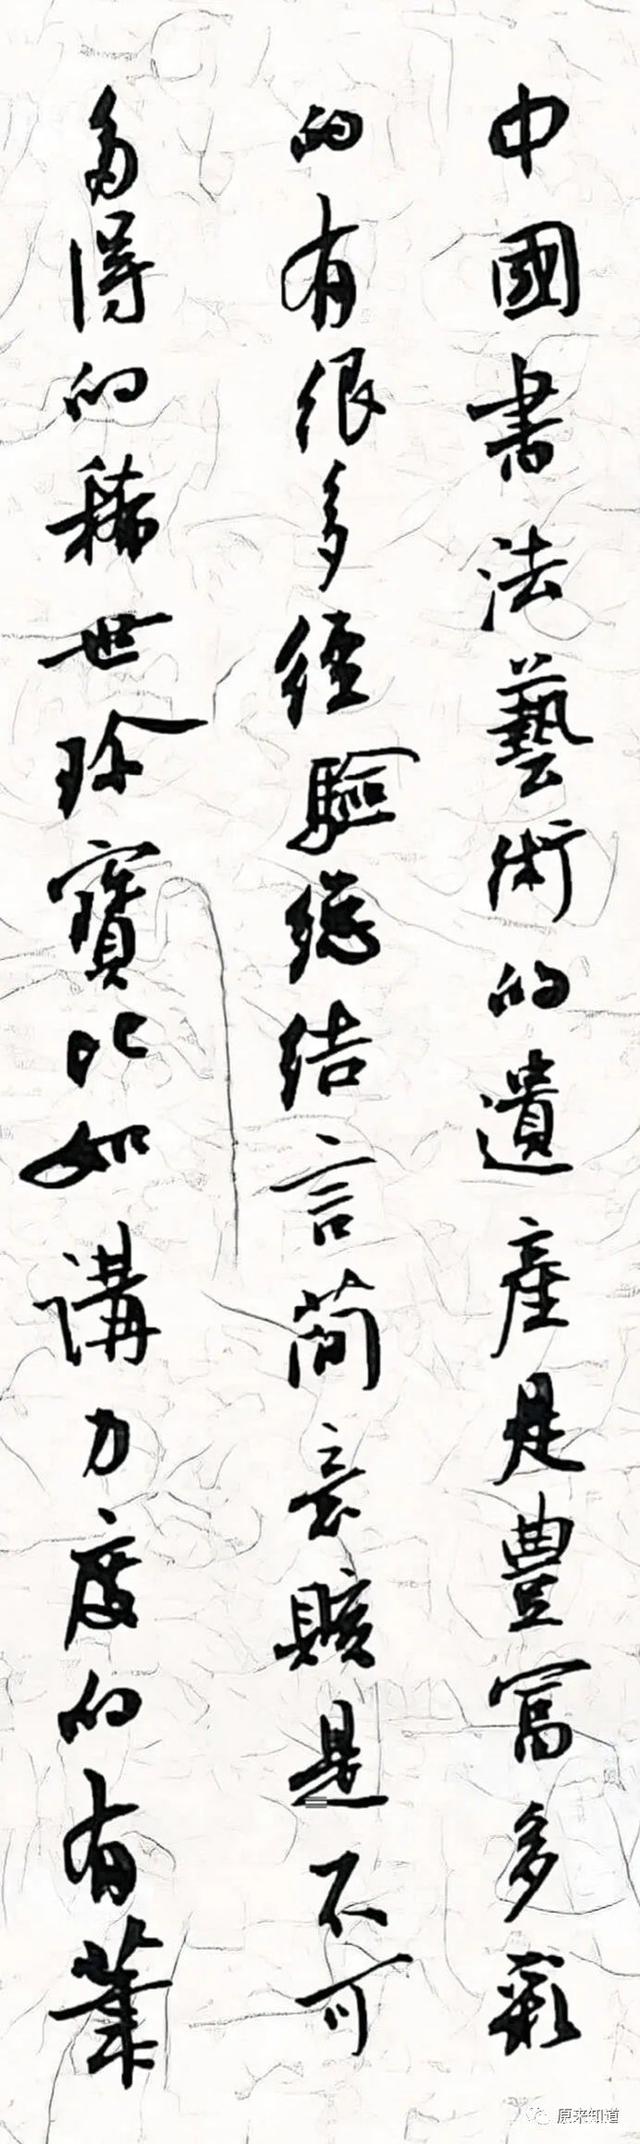 中國書法藝術的遺產是豐富多彩
的有很多經驗總結言簡意賅是不可
多得的稀世珍寶比如講力度的有筆
原来知道